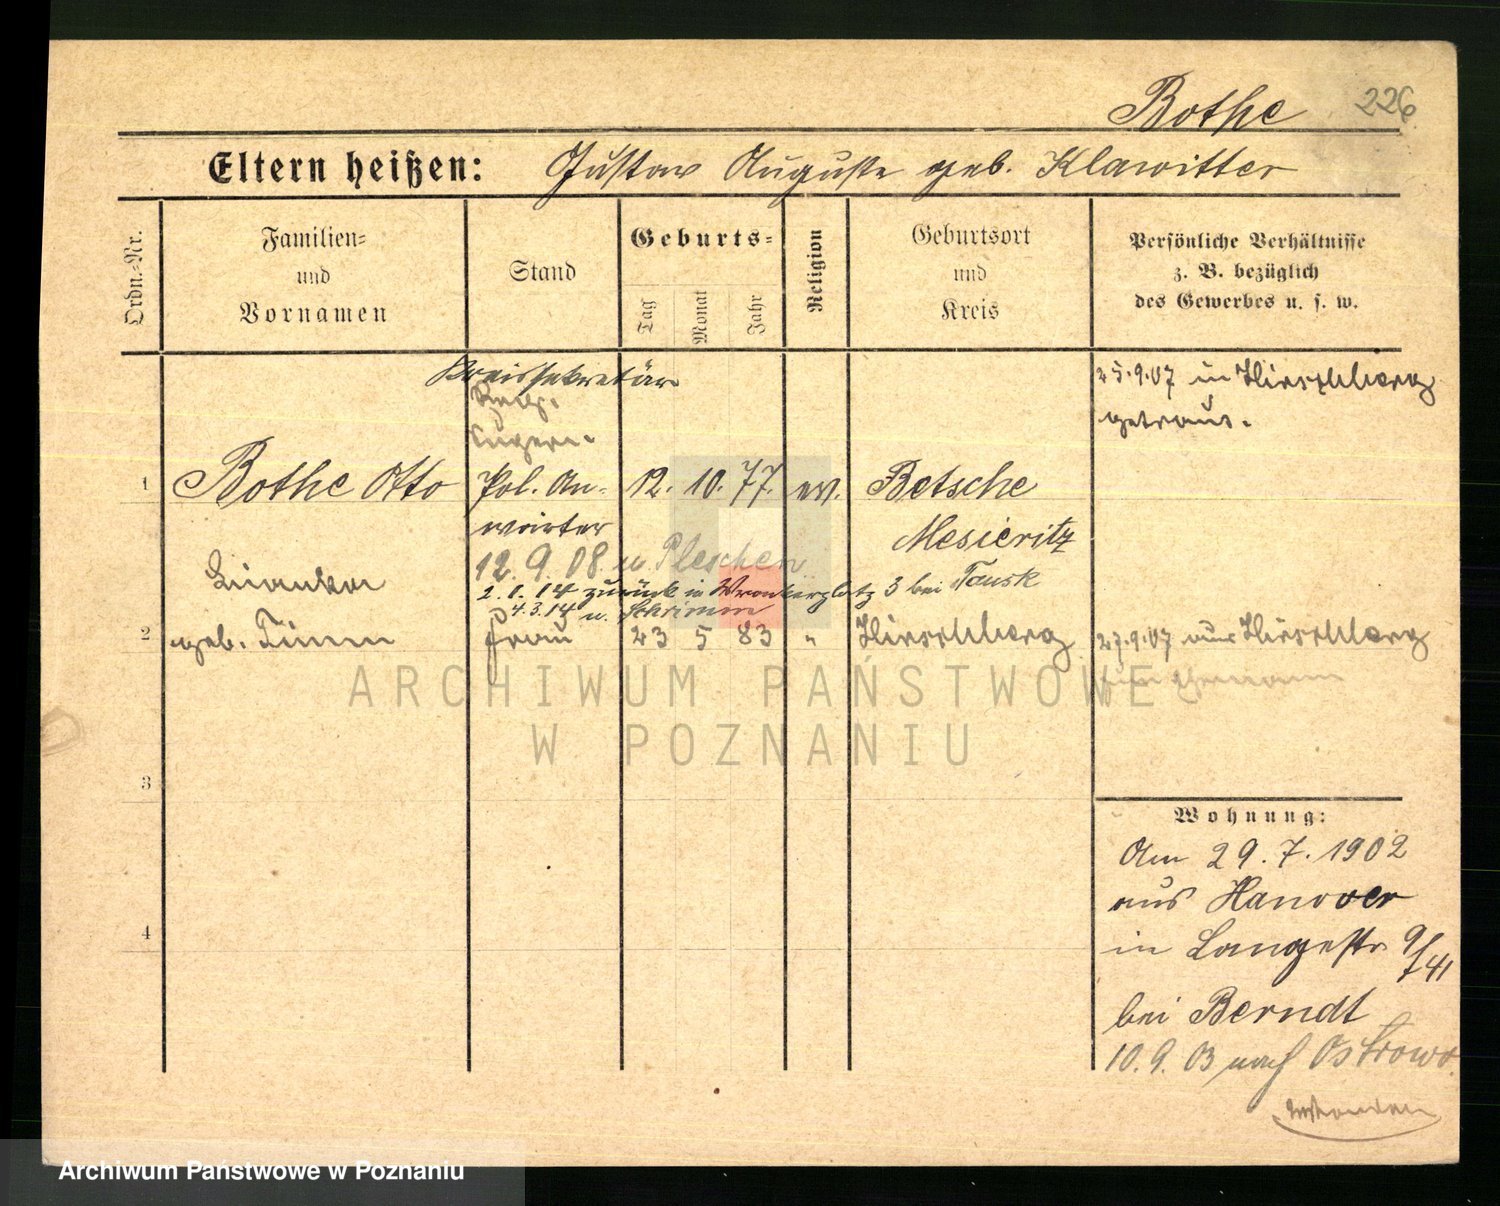 Bothe 226
Eltern heißen: Gustav Auguste geb. Klawitter
Ordn.-Nr.
Familien-
und
Vornamen
Stand
Geburts-
Tag
Monat
Jahr
Religion
Geburtsort
und
Kreis
Persönliche Verhältnisse
z. B. bezüglich
des Gewerbes u. s. w.
Kreissekretär
25.9.07 in Hirschberg
getraut.
1 Bothe Otto Pol. An- 12. 10. 77. ev. Betsche
wärter Meseritz
12. 9. 08. n. Pleschen
2. 1. 14 zurück in Wronkerplatz 3 bei Tausk
4.3.14 n. Schrimm
2 geb. Timm Frau 23 5 83 " Hirschberg 27.9.07 aus Hirschberg
3
4
Wohnung:
Am 29. 7. 1902
aus Hanover
in Langestr 9/41
bei Berndt
10. 9. 03 nach Ostrowo.
ARCHIWUM PAŃSTWOWE
W POZNANIU
Archiwum Państwowe w Poznaniu